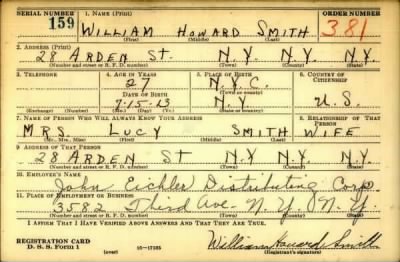 SERIAL NUMBER 1. NAME (Print) ORDER NUMBER
159 WILLIAM HOWARD SMITH 381
(First) (Middle) (Last)
2. ADDRESS (Print)
28 ARDEN ST. N.Y. N.Y. N.Y.
(Number and street or R. F. D. number) (Town) (County) (State)
3. TELEPHONE 4. AGE IN YEARS 5. PLACE OF BIRTH 6. COUNTRY OF CITIZENSHIP
27 N.Y.C.
DATE OF BIRTH (Town or county)
7-15-13 N.Y. U.S.
(Exchange) (Number) (Mo.) (Day) (Yr.) (State or country)
7. NAME OF PERSON WHO WILL ALWAYS KNOW YOUR ADDRESS 8. RELATIONSHIP OF THAT PERSON
MRS. LUCY SMITH WIFE
(Mr., Mrs., Miss) (First) (Middle) (Last)
9. ADDRESS OF THAT PERSON
28 ARDEN ST N.Y. N.Y. N.Y.
(Number and street or R. F. D. number) (Town) (County) (State)
10. EMPLOYER'S NAME
John Eichler Distributing Corp.
11. PLACE OF EMPLOYMENT OR BUSINESS
3582 Third Ave. N.Y. N.Y.
(Number and street or R. F. D. number) (Town) (County) (State)
I AFFIRM THAT I HAVE VERIFIED ABOVE ANSWERS AND THAT THEY ARE TRUE.
REGISTRATION CARD
D. S. S. Form 1 (over) 16-17105 William Howard Smith
(Registrant's signature)